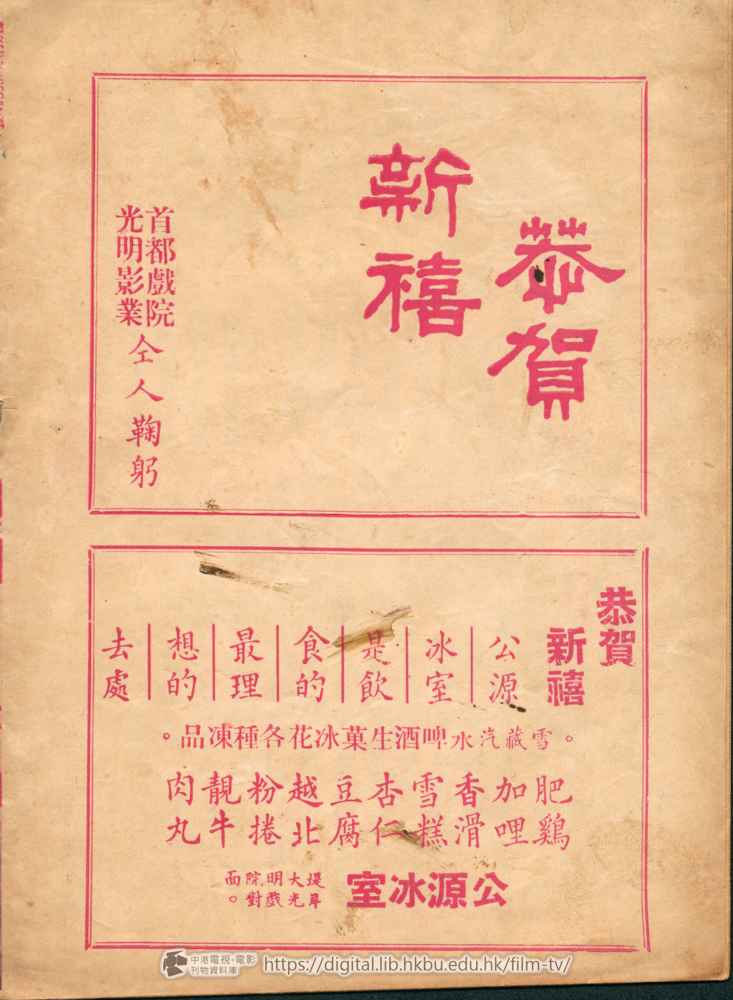 恭賀
新禧
首都戲院
光明影業
仝人鞠躬
恭賀
新禧
公源
冰室
是飲
食的
最理
想的
去處
。雪藏汽水啤酒生菓冰花各種凍品。
肥鷄
加哩
香滑
雪糕
杏仁
豆腐
越北
粉捲
靚牛
肉丸
公源冰室
堤岸
大光
明戲
院對
面。
中港電視・電影
刊物資料庫
https://digital.lib.hkbu.edu.hk/film-tv/